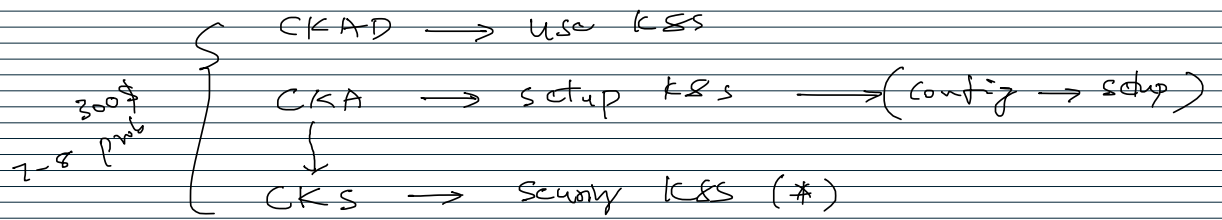 CKAD → use K8s
300$ CKA → setup K8s → (config → setup)
7-8 prob
CKS → Security K8s (*)